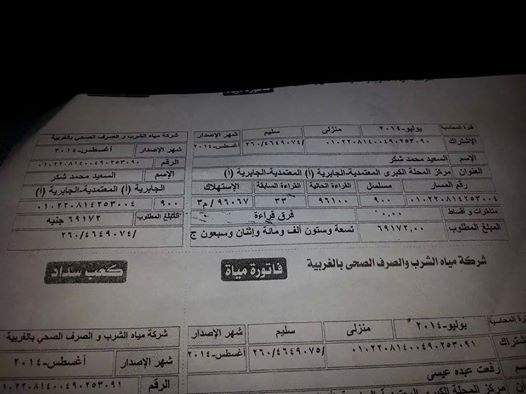 شركة مياه الشرب و الصرف الصحى بالغربية
فترة المحاسبة يوليو-٢٠١٤ منزلى سليم شهر الإصدار
الإشتراك ٠١٠٢٢٠٨١٤٠٠٤٩٠٢٥٣٠٩٠ ٢٦٠/٤٦٤٩٠٧٤/ أغسطس-٢٠١٤
شهر الإصدار أغسطس-٢٠١٤
الإسم السعيد محمد شكر
الرقم ٠١٠٢٢٠٨١٤٠٠٤٩٠٢٥٣٠٩٠
العنوان مركز المحلة الكبرى المعتمدية-الجابرية (أ) المعتمدية-الجابرية (أ)
الإسم السعيد محمد شكر
رقم المسار مسلسل القراءة الحالية القراءة السابقة الإستهلاك
الجابرية (أ) المعتمدية-الجابرية (أ)
٠١٠٢٢٠٨١٤٢٥٣٠٠٤ ٩٠٠ ٩٦١٠٠ ٣٣ ٩٦٠٦٧ / م٣
٩٠٠ ٠١٠٢٢٠٨١٤٢٥٣٠٠٤
متأخرات و أقساط ٠.٠٠ فرق قراءة
المبلغ المطلوب ٦٩١٧٢.٠٠ تسعة وستون ألف ومائة وإثنان وسبعون ج
المبلغ المطلوب ٦٩١٧٢ جنيه
٢٦٠/٤٦٤٩٠٧٤/
شركة مياه الشرب والصرف الصحى بالغربية فاتورة مياة كعب سداد
شركة مياه الشرب و الصرف الصحى بالغربية
المحاسبة يوليو-٢٠١٤ منزلى سليم شهر الإصدار
٠١٠٢٢٠٨١٤٠٠٤٩٠٢٥٣٠٩١ ٢٦٠/٤٦٤٩٠٧٥/ أغسطس-٢٠١٤
شهر الإصدار أغسطس-٢٠١٤
رفعت عبده عيسى
الرقم ٠١٠٢٢٠٨١٤٠٠٤٩٠٢٥٣٠٩١